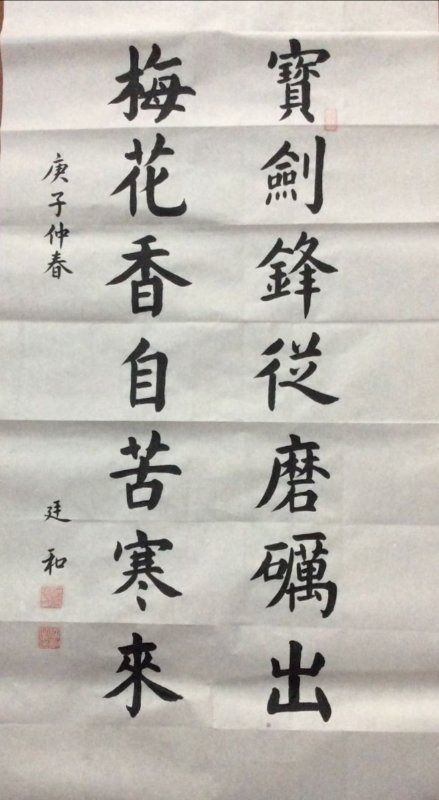 寶劍鋒從磨礪出
梅花香自苦寒來
庚子仲春
廷和